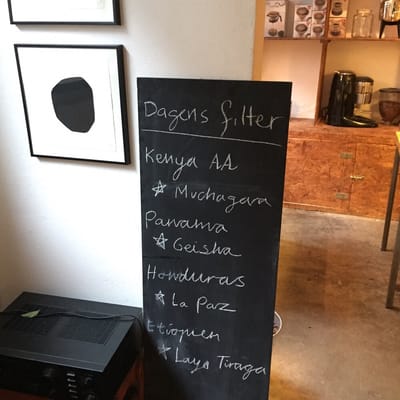 Dagens filter
Kenya AA
☆ Muchagara
Panama
☆ Geisha
Honduras
☆ La Paz
Etiopien
☆ Layo Tiraga